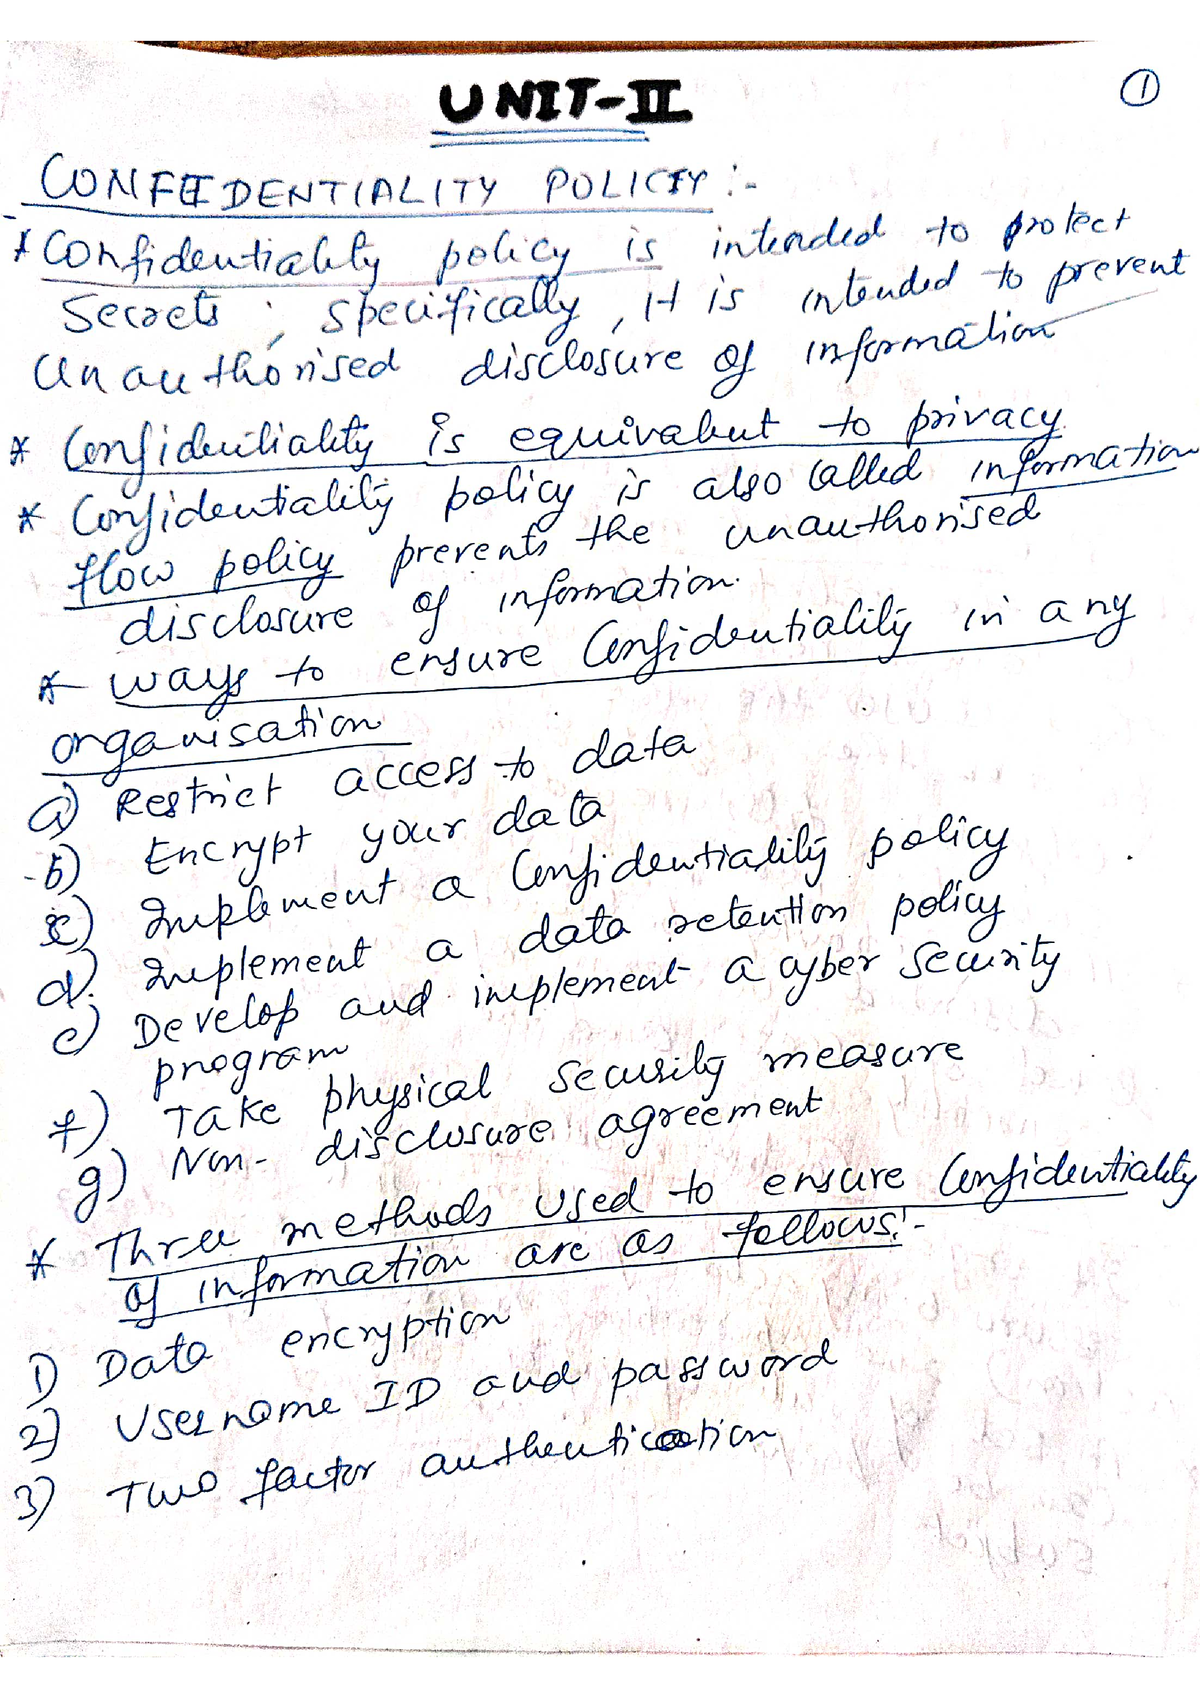 UNIT-II
1
CONFIDENTIALITY POLICY :-
* Confidentiality policy is intended to protect
Secrets ; specifically, it is intended to prevent
Unauthorised disclosure of information
* Confidentiality is equivalent to privacy.
* Confidentiality policy is also called information
flow policy prevents the unauthorised
disclosure of information.
* ways to ensure Confidentiality in any
organisation
a) Restrict access to data
b) Encrypt your data
c) Implement a Confidentiality policy
d. Implement a data retention policy
e) Develop and implement a cyber Security
program
f) Take physical security measure
g) Non-disclosure agreement
* Three methods used to ensure Confidentiality
of information are as follows:-
1) Data encryption
2) Username ID and password
3) Two factor authentication